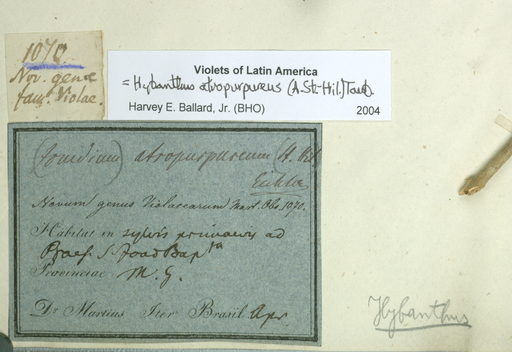 1070.
Nov. genus
fam. Violac.
Violets of Latin America
= Hybanthus atropurpureus (A.St.-Hil.) Taub.
Harvey E. Ballard, Jr. (BHO)
2004
(Ionidium) atropurpureum (St. Hil.)
Eichler
Novum genus Violacearum Mart. Obs. 1070.
Habitat in sylvis primaevis ad
Praes. S. Joao Bapta
Provinciae M. G.
Dr Martius Iter Brasil Apr.
Hybanthus